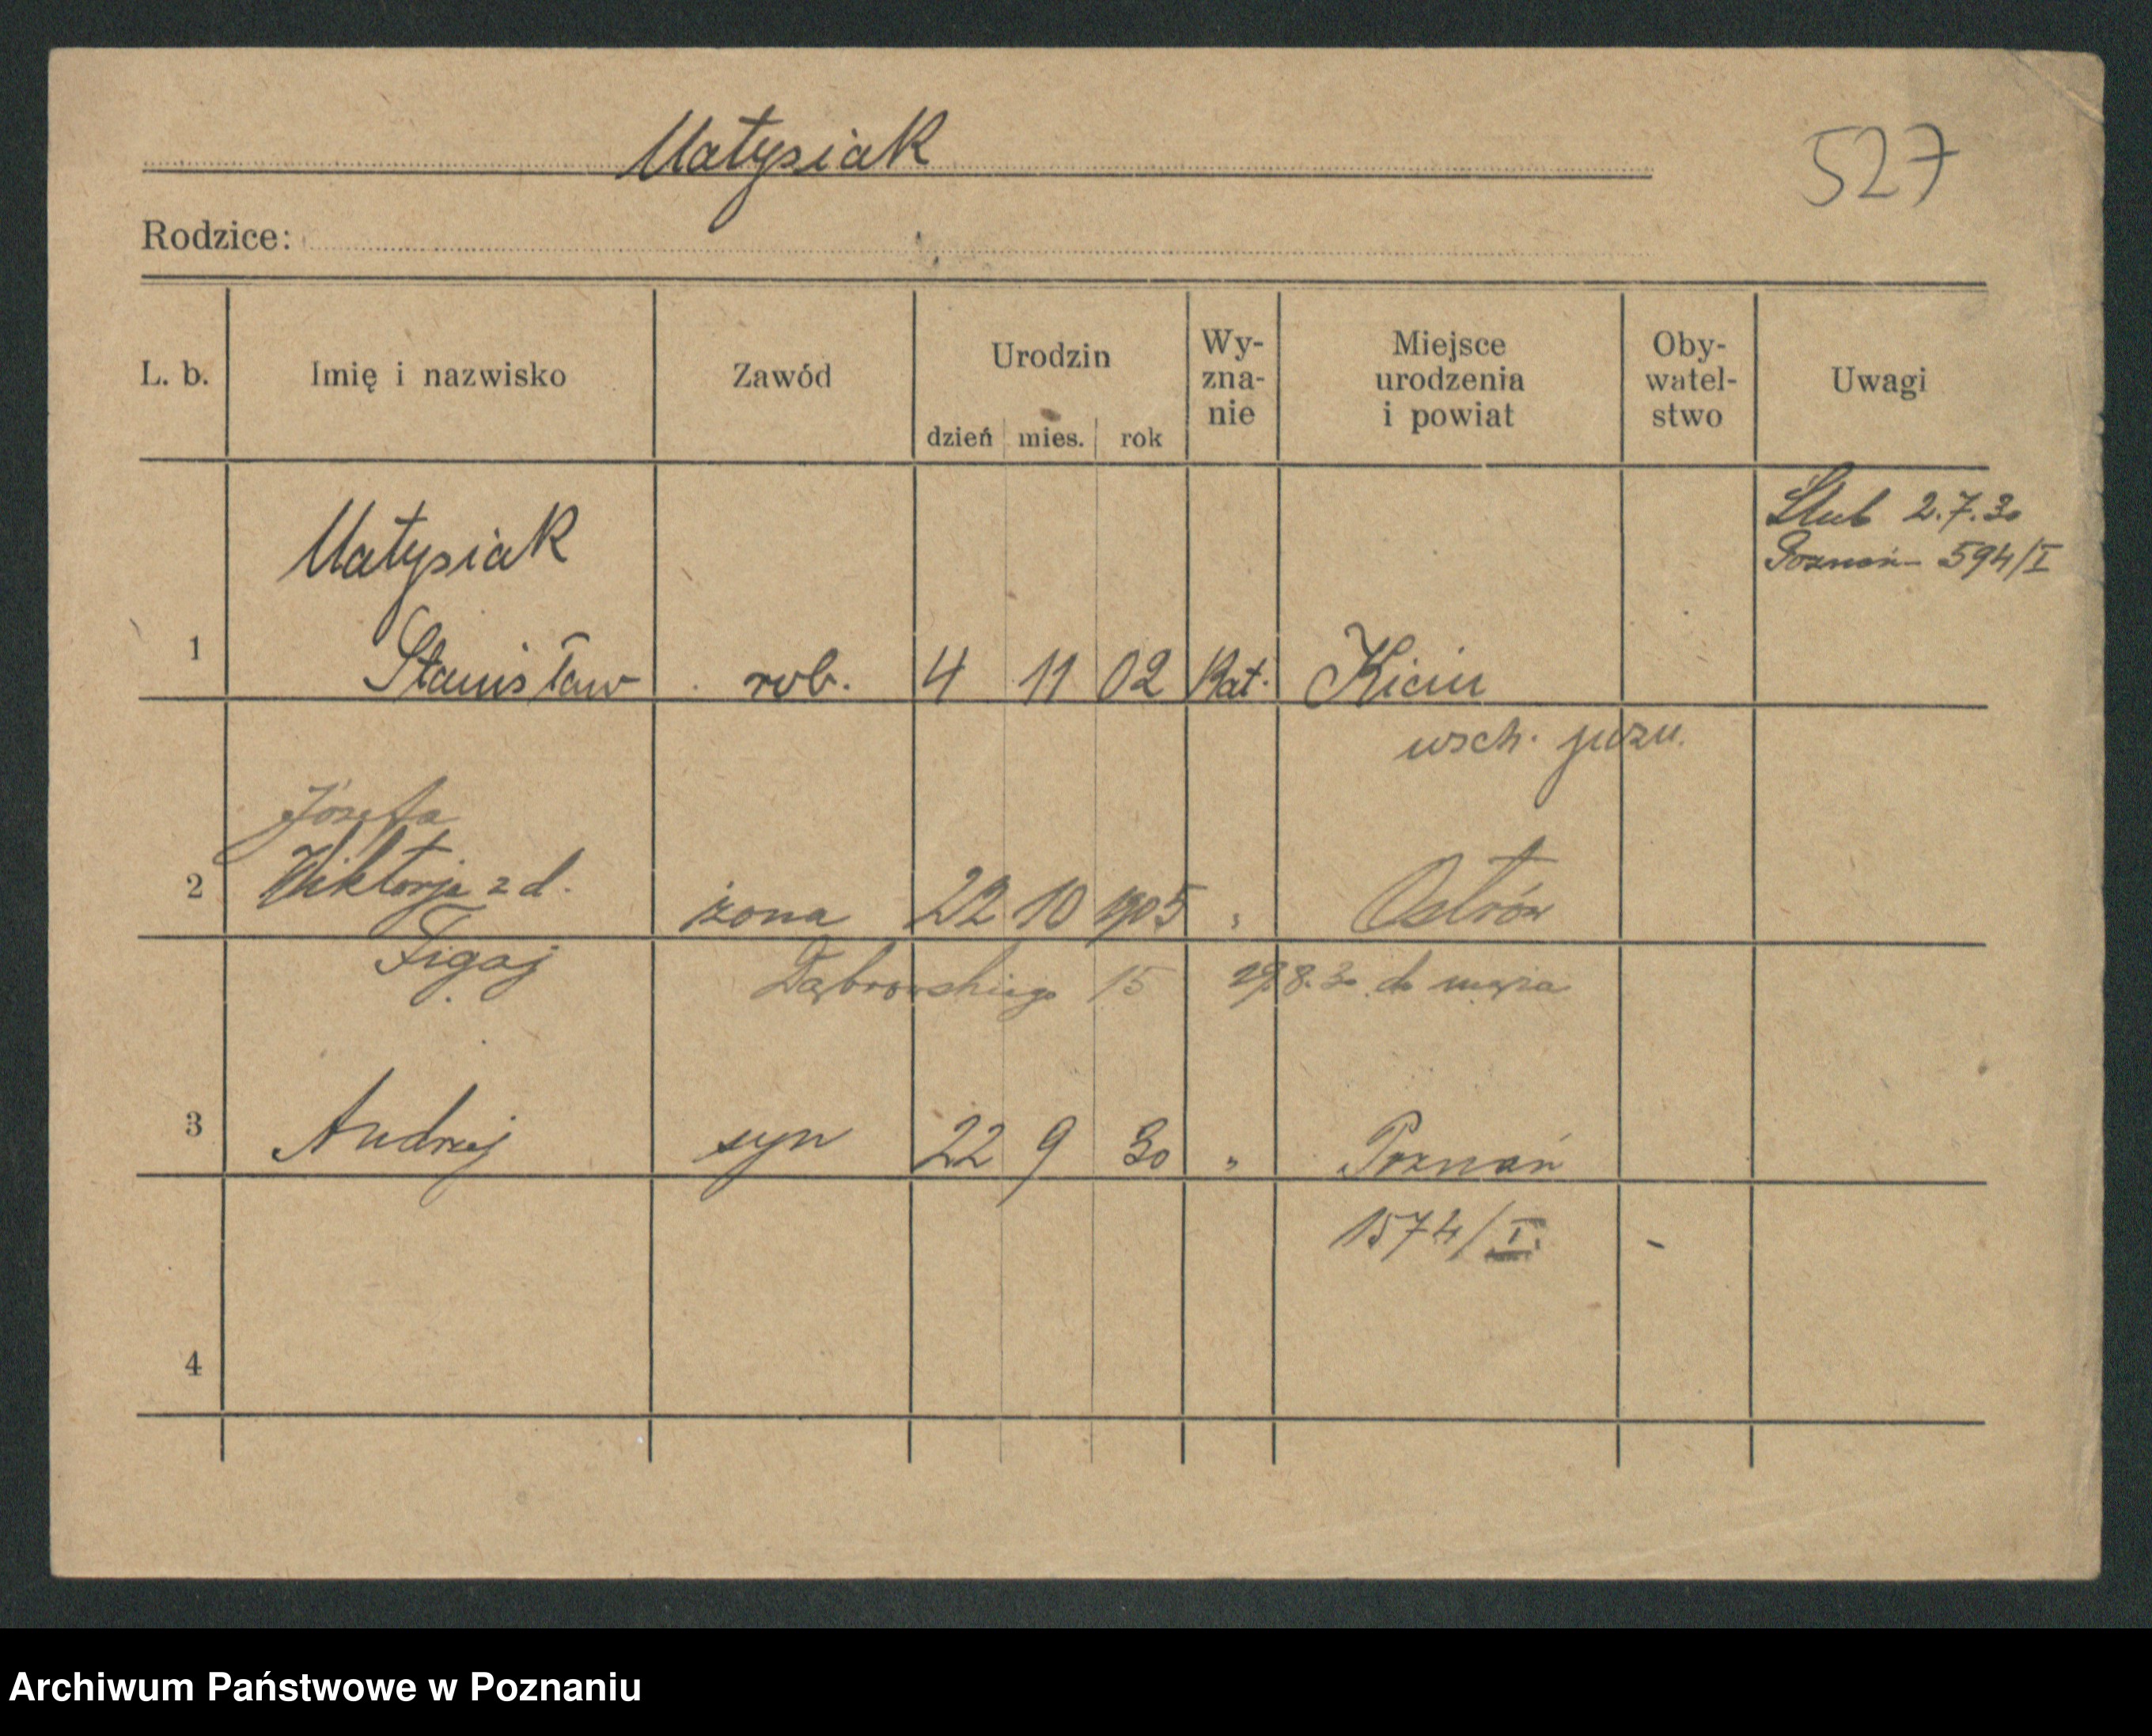 Matysiak
527
Rodzice:
L. b. Imię i nazwisko Zawód Urodzin dzień mies. rok Wy-zna-nie Miejsce urodzenia i powiat Oby-watel-stwo Uwagi
Ślub 2.7.30
Poznań - 594/I
Matysiak
1 Stanisław rob. 4 11 02 Kat. Kicin
wsch. pozn.
Józefa
2 Wiktorja z d. żona 22 10 1905 " Ostrów
Figaj
Dąbrowskiego 15 29.8.30 do męża
3 Andrzej syn 22 9 30 " Poznań
1574/I. -
4
Archiwum Państwowe w Poznaniu